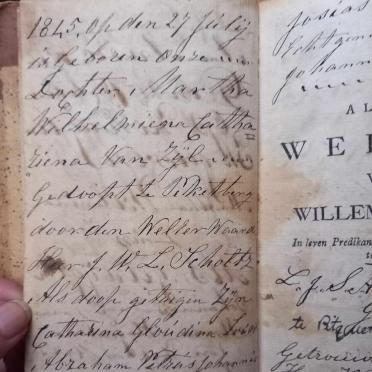 1845, op den 27 Julij
is Gebooren onze
Dochter, Martha
Wilhelmiena Catha=
riena Van Zÿl
Gedoopt te Piketberg
door den Weller Waard
Her J. W. L. Scholtz
Als doop getuigen Zyn
Catharina Gloudina
Abraham Petrus Johannis
Josias
Echtgen
Johann
A L
W E
V
WILLEM
In leven Predikan
te
L. J. S.
te
Getrouw